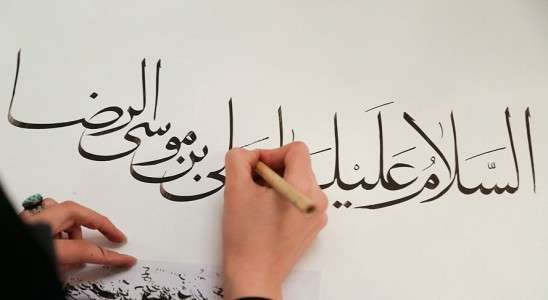 السَّلامُ عَلَيْكَ يا على بن موسى الرضا